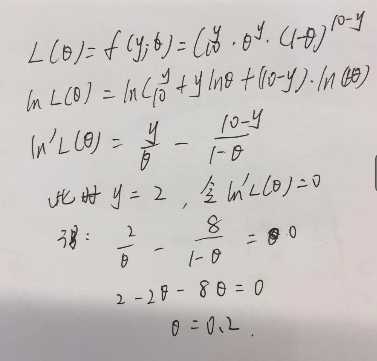 L(θ)=f(y;θ)=C₁₀ʸ·θʸ·(1-θ)¹⁰⁻ʸ
ln L(θ)=ln C₁₀ʸ+y lnθ+(10-y)·ln(1-θ)
ln'L(θ)=y/θ - (10-y)/(1-θ)
此时 y=2, 令 ln'L(θ)=0
得: 2/θ - 8/(1-θ) = 0
2-2θ-8θ=0
θ=0.2.